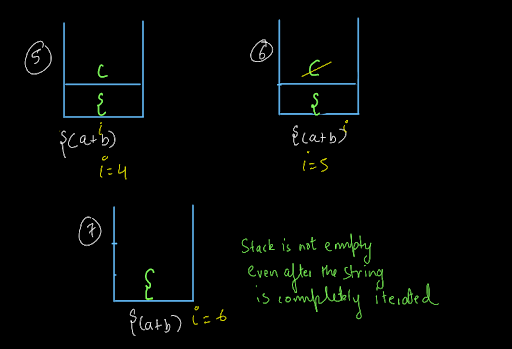 5
(
{
i
{(a+b)
i=4
6
(
{
i
{(a+b)
i=5
7
{
{(a+b) i=6
Stack is not empty
even after the string
is completely iterated